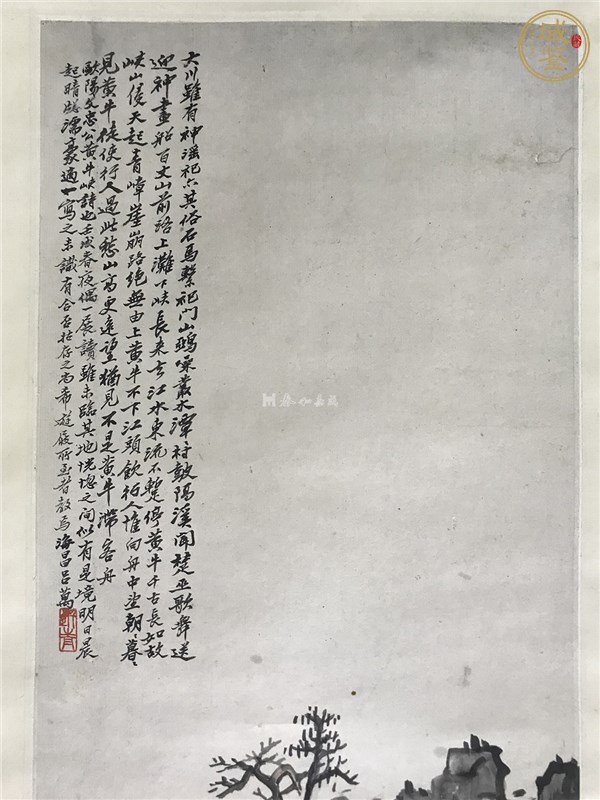 大川雖有神滛祀亦其俗石馬繫祀門山鵶噪叢木潭村皷隔溪聞楚巫歌舞送
迎神畫船百丈山前路上灘下峽長来去江水東流不暫停黄牛千古長如故
峽山侵天起青嶂崖崩路绝無由上黄牛不下江頭飲行人惟向舟中望朝〻暮〻
見黄牛徒使行人過此愁山髙更遠望猶見不是黄牛滞客舟
歐陽文忠公黄牛峽詩也壬戌春夜偶一展讀雖未臨其地恍惚之间似有是境明日晨
起晴牕濡豪適一寫之未識有合否姑存之尚希遊履所至者教焉 海昌吕萬
域鉴